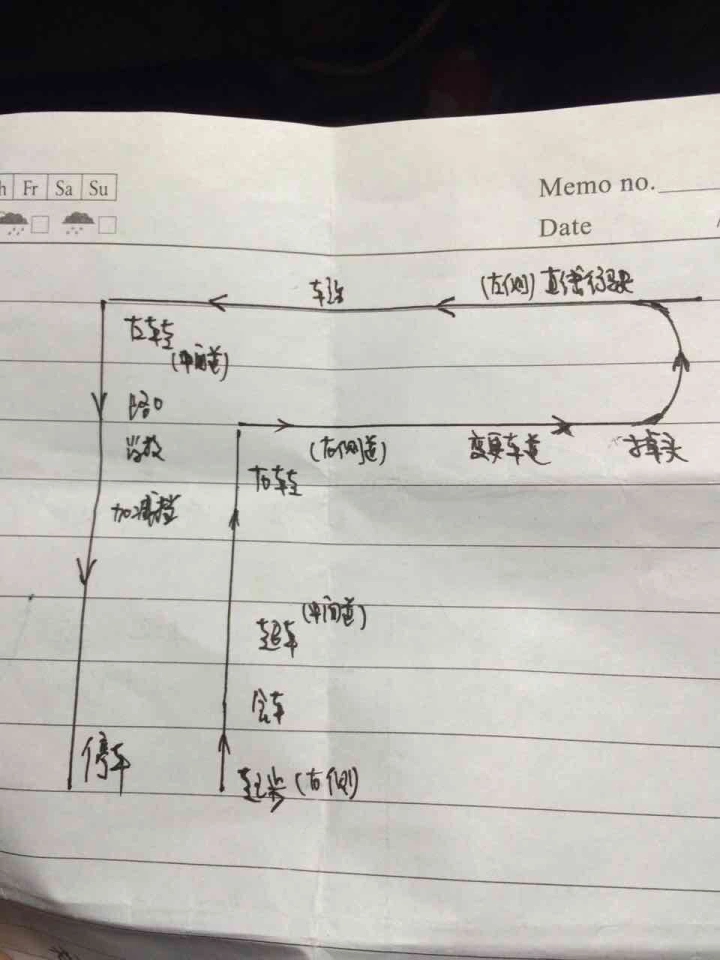 h Fr Sa Su
Memo no.
Date
(左侧) 直线行驶
车站
左转
(中间道)
路口
学校
加减档
(右侧道)
变更车道
掉头
右转
超车 (中间道)
会车
起步 (右侧)
停车